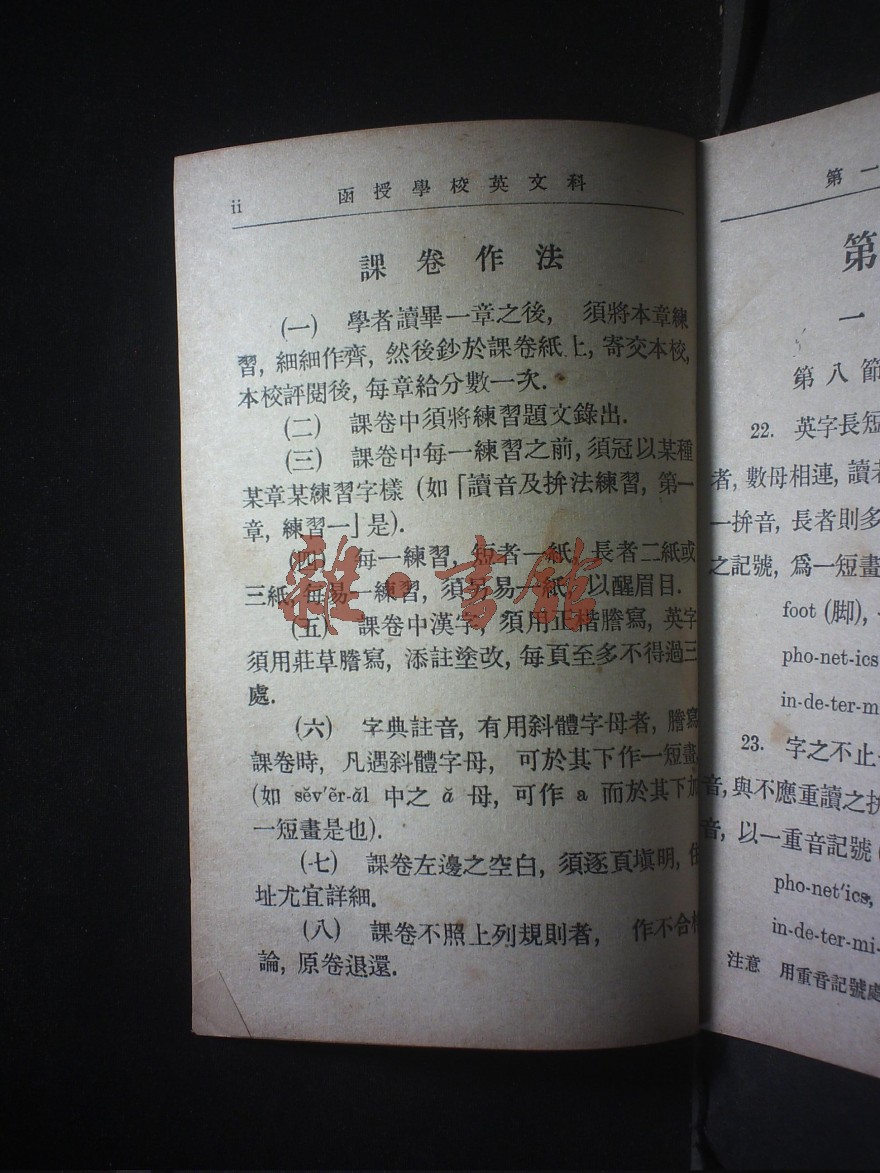 ii 函授學校英文科
課卷作法
(一) 學者讀畢一章之後, 須將本章練
習, 細細作齊, 然後鈔於課卷紙上, 寄交本校,
本校評閱後, 每章給分數一次.
(二) 課卷中須將練習題文錄出.
(三) 課卷中每一練習之前, 須冠以某種
某章某練習字樣 (如「讀音及拚法練習, 第一
章, 練習一」是).
(四) 每一練習, 短者一紙, 長者二紙或
三紙, 每易一練習, 須另易一紙, 以醒眉目.
(五) 課卷中漢字, 須用正楷謄寫, 英字
須用莊草謄寫, 添註塗改, 每頁至多不得過三
處.
(六) 字典註音, 有用斜體字母者, 謄寫
課卷時, 凡遇斜體字母, 可於其下作一短畫
(如 sĕv′ẽr-ăl 中之 ă 母, 可作 a 而於其下加
一短畫是也).
(七) 課卷左邊之空白, 須逐頁塡明, 住
址尤宜詳細.
(八) 課卷不照上列規則者, 作不合格
論, 原卷退還.
雜·書館
第一
第
一
第八節
22. 英字長短
者, 數母相連, 讀
一拚音, 長者則多
之記號, 爲一短畫
foot (脚),
pho-net-ics
in-de-ter-m
23. 字之不止
音, 與不應重讀之拚
音, 以一重音記號
pho-net′ics,
in-de-ter-mi-
注意 用重音記號處